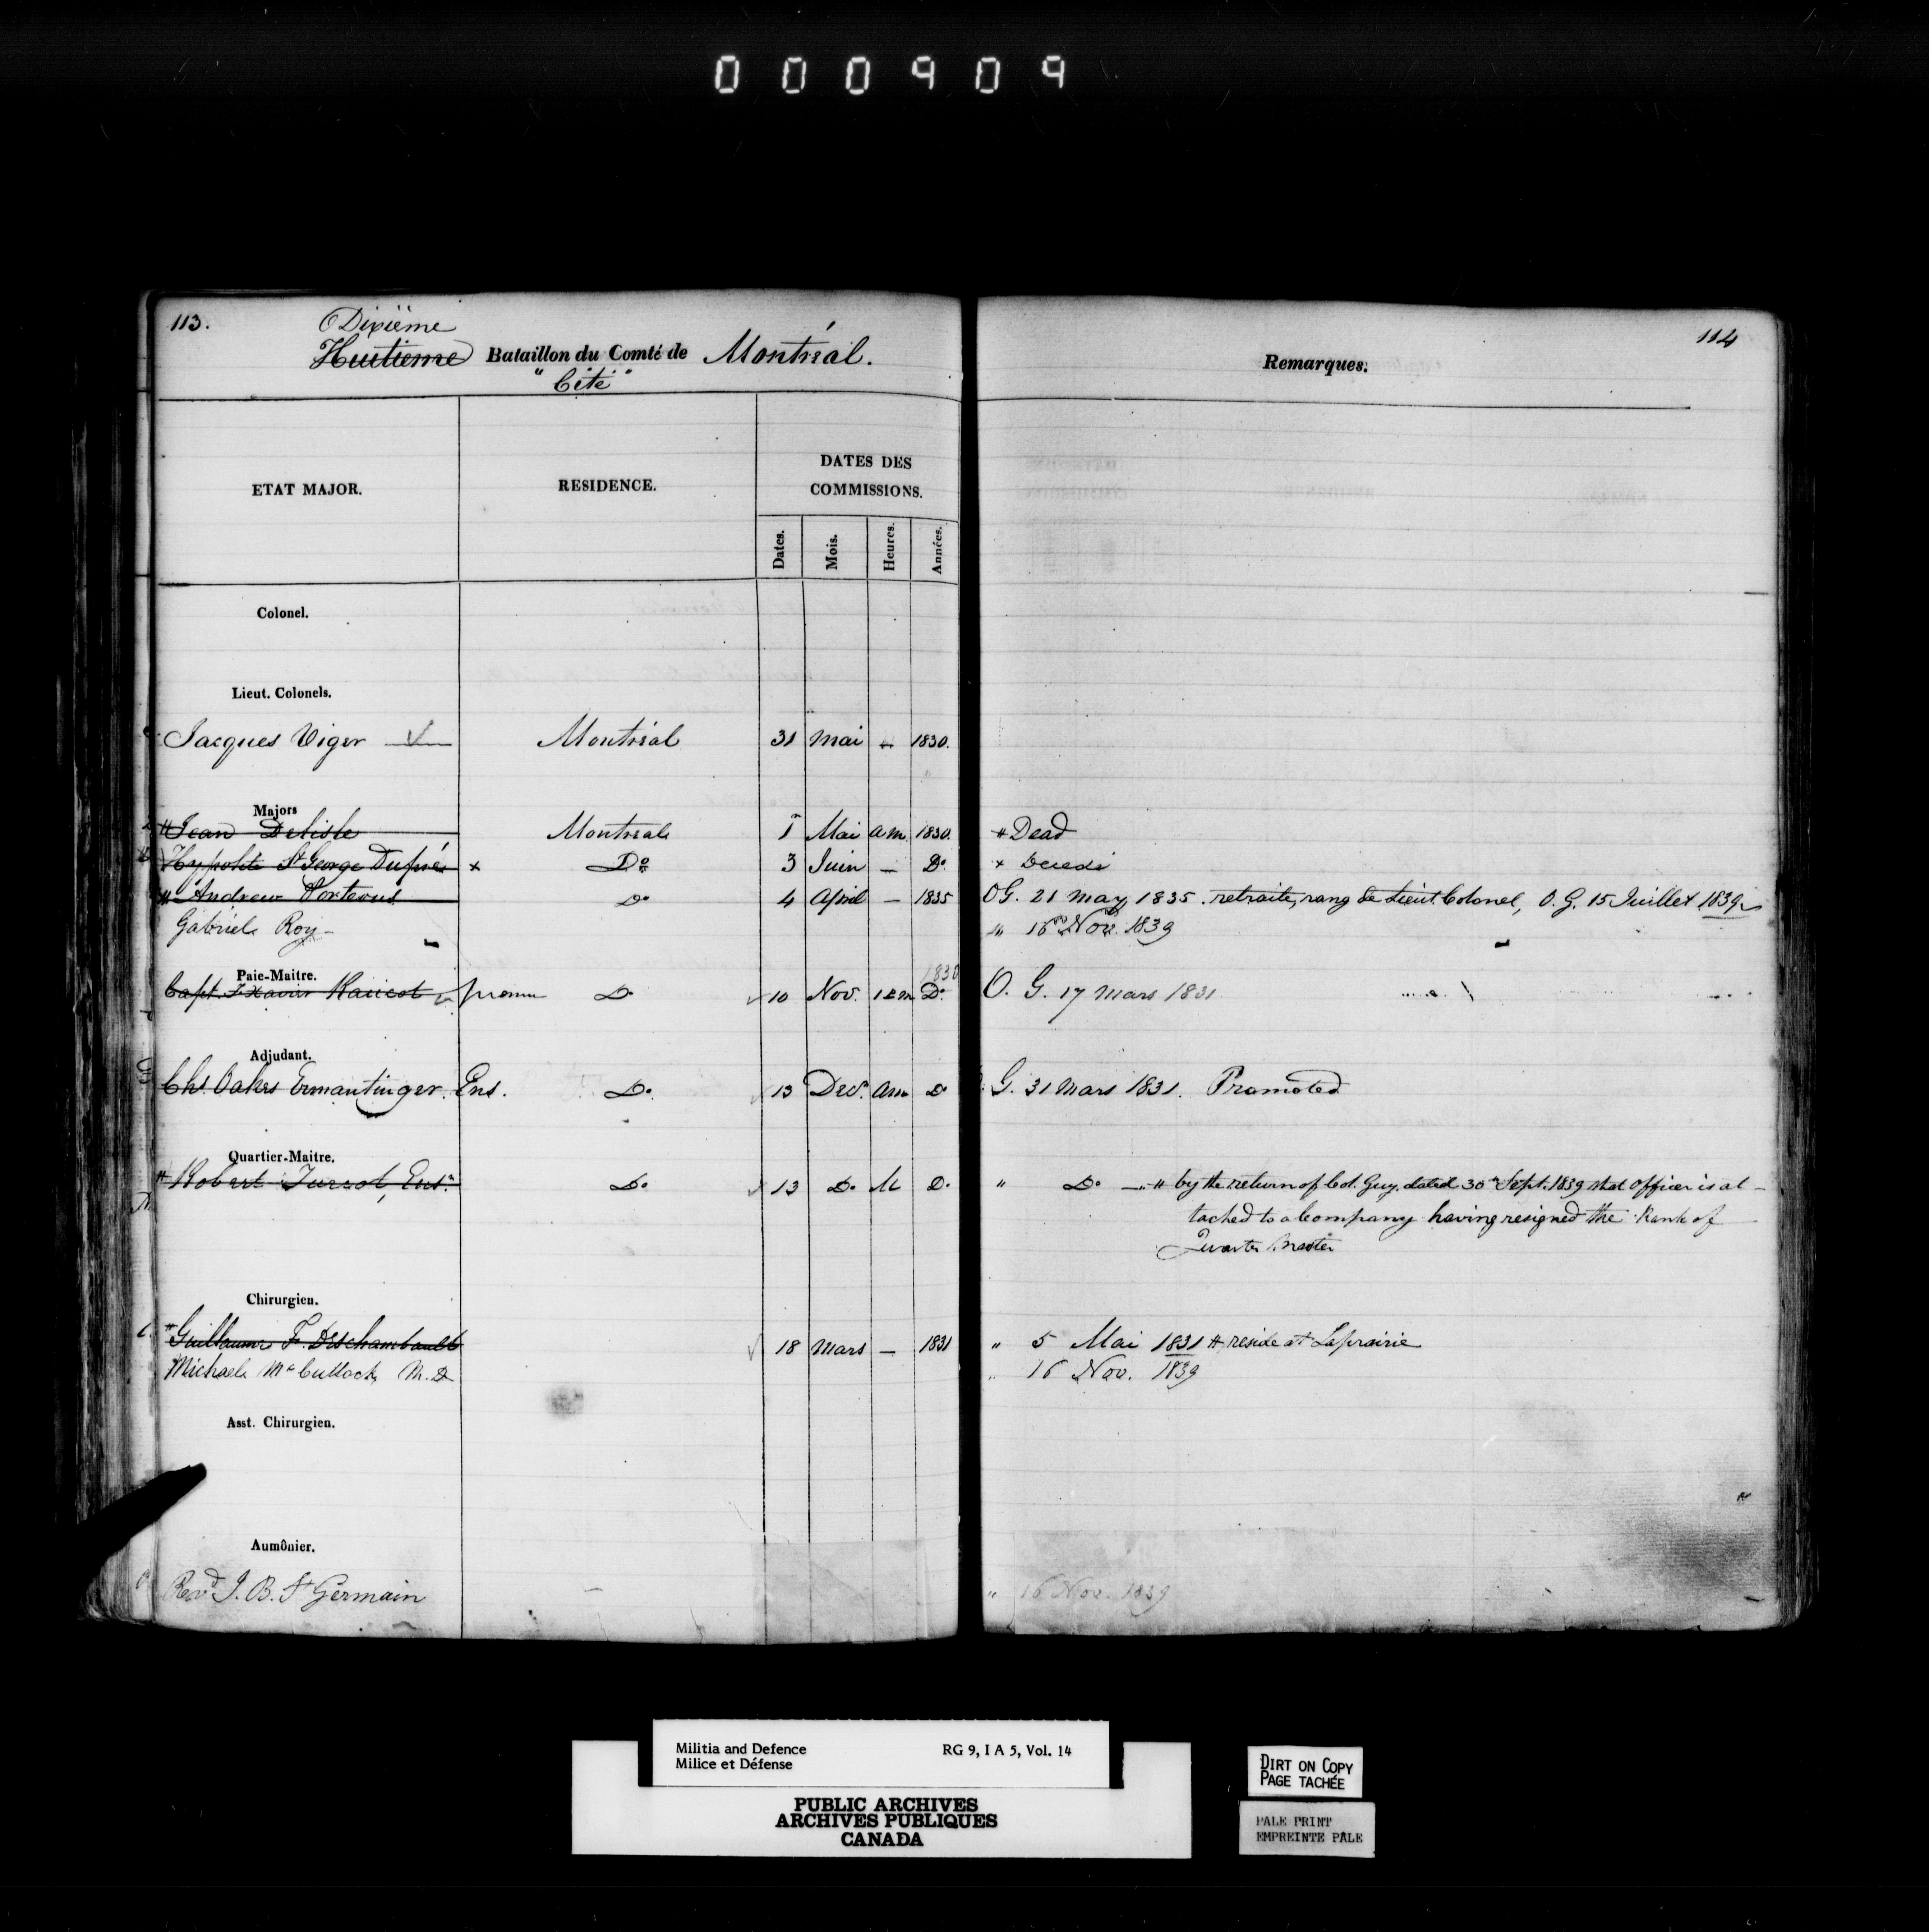 000909
113.
Dixième
Huitieme Bataillon du Comté de Montréal.
"Cité"
ETAT MAJOR.
RESIDENCE.
DATES DES
COMMISSIONS.
Dates. Mois. Heures. Années.
Colonel.
Lieut. Colonels.
Jacques Viger Montréal 31 Mai - 1830.
Majors
# Jean Delisle Montreal 1r Mai am 1830.
Hypolite St George Dupré x Do 3 Juin - Do
# Andrew Porteous Do 4 April - 1835
Gabriel Roy -
Paie-Maitre.
1830
Capt. F. Xavier promu Do 10 Nov. Do
Adjudant.
Chs Oakes Ermantinger. Ens. Do 13 Decr. am Do
Quartier-Maitre.
# Robert Ensn. Do 13 Do M Do
Chirurgien.
# Guillaume F. Deschambault 18 Mars - 1831
Michael McCulloch, M.D
Asst. Chirurgien.
Aumônier.
Revd J. B. St Germain -
114
Remarques.
# Dead
x Decedé
OG. 21 May 1835. retraite, rang de Lieut. Colonel, O. G. 15 Juillet 1839
" 16 Nov. 1839
O. G. 17 Mars 1831
G. 31 Mars 1831. Promoted
" Do - # by the return of Col. Guy, dated 30th Sept. 1839 that officer is at-
tached to a Company having resigned the Rank of
Quarter Master
" 5 Mai 1831 # reside at Laprairie
" 16 Nov. 1839
" 16 Nov. 1839
Militia and Defence RG 9, I A 5, Vol. 14
Milice et Défense
PUBLIC ARCHIVES
ARCHIVES PUBLIQUES
CANADA
DIRT ON COPY
PAGE TACHÉE
PALE PRINT
EMPREINTE PÂLE